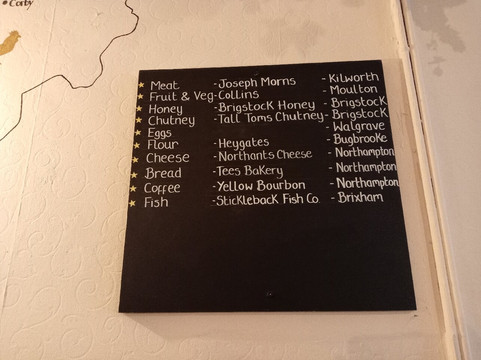 Corby
★ Meat - Joseph Morris - Kilworth
★ Fruit & Veg - Collins - Moulton
★ Honey - Brigstock Honey - Brigstock
★ Chutney - Tall Toms Chutney - Brigstock
★ Eggs - Walgrave
★ Flour - Heygates - Bugbrooke
★ Cheese - Northants Cheese - Northampton
★ Bread - Tees Bakery - Northampton
★ Coffee - Yellow Bourbon - Northampton
★ Fish - Stickleback Fish Co - Brixham